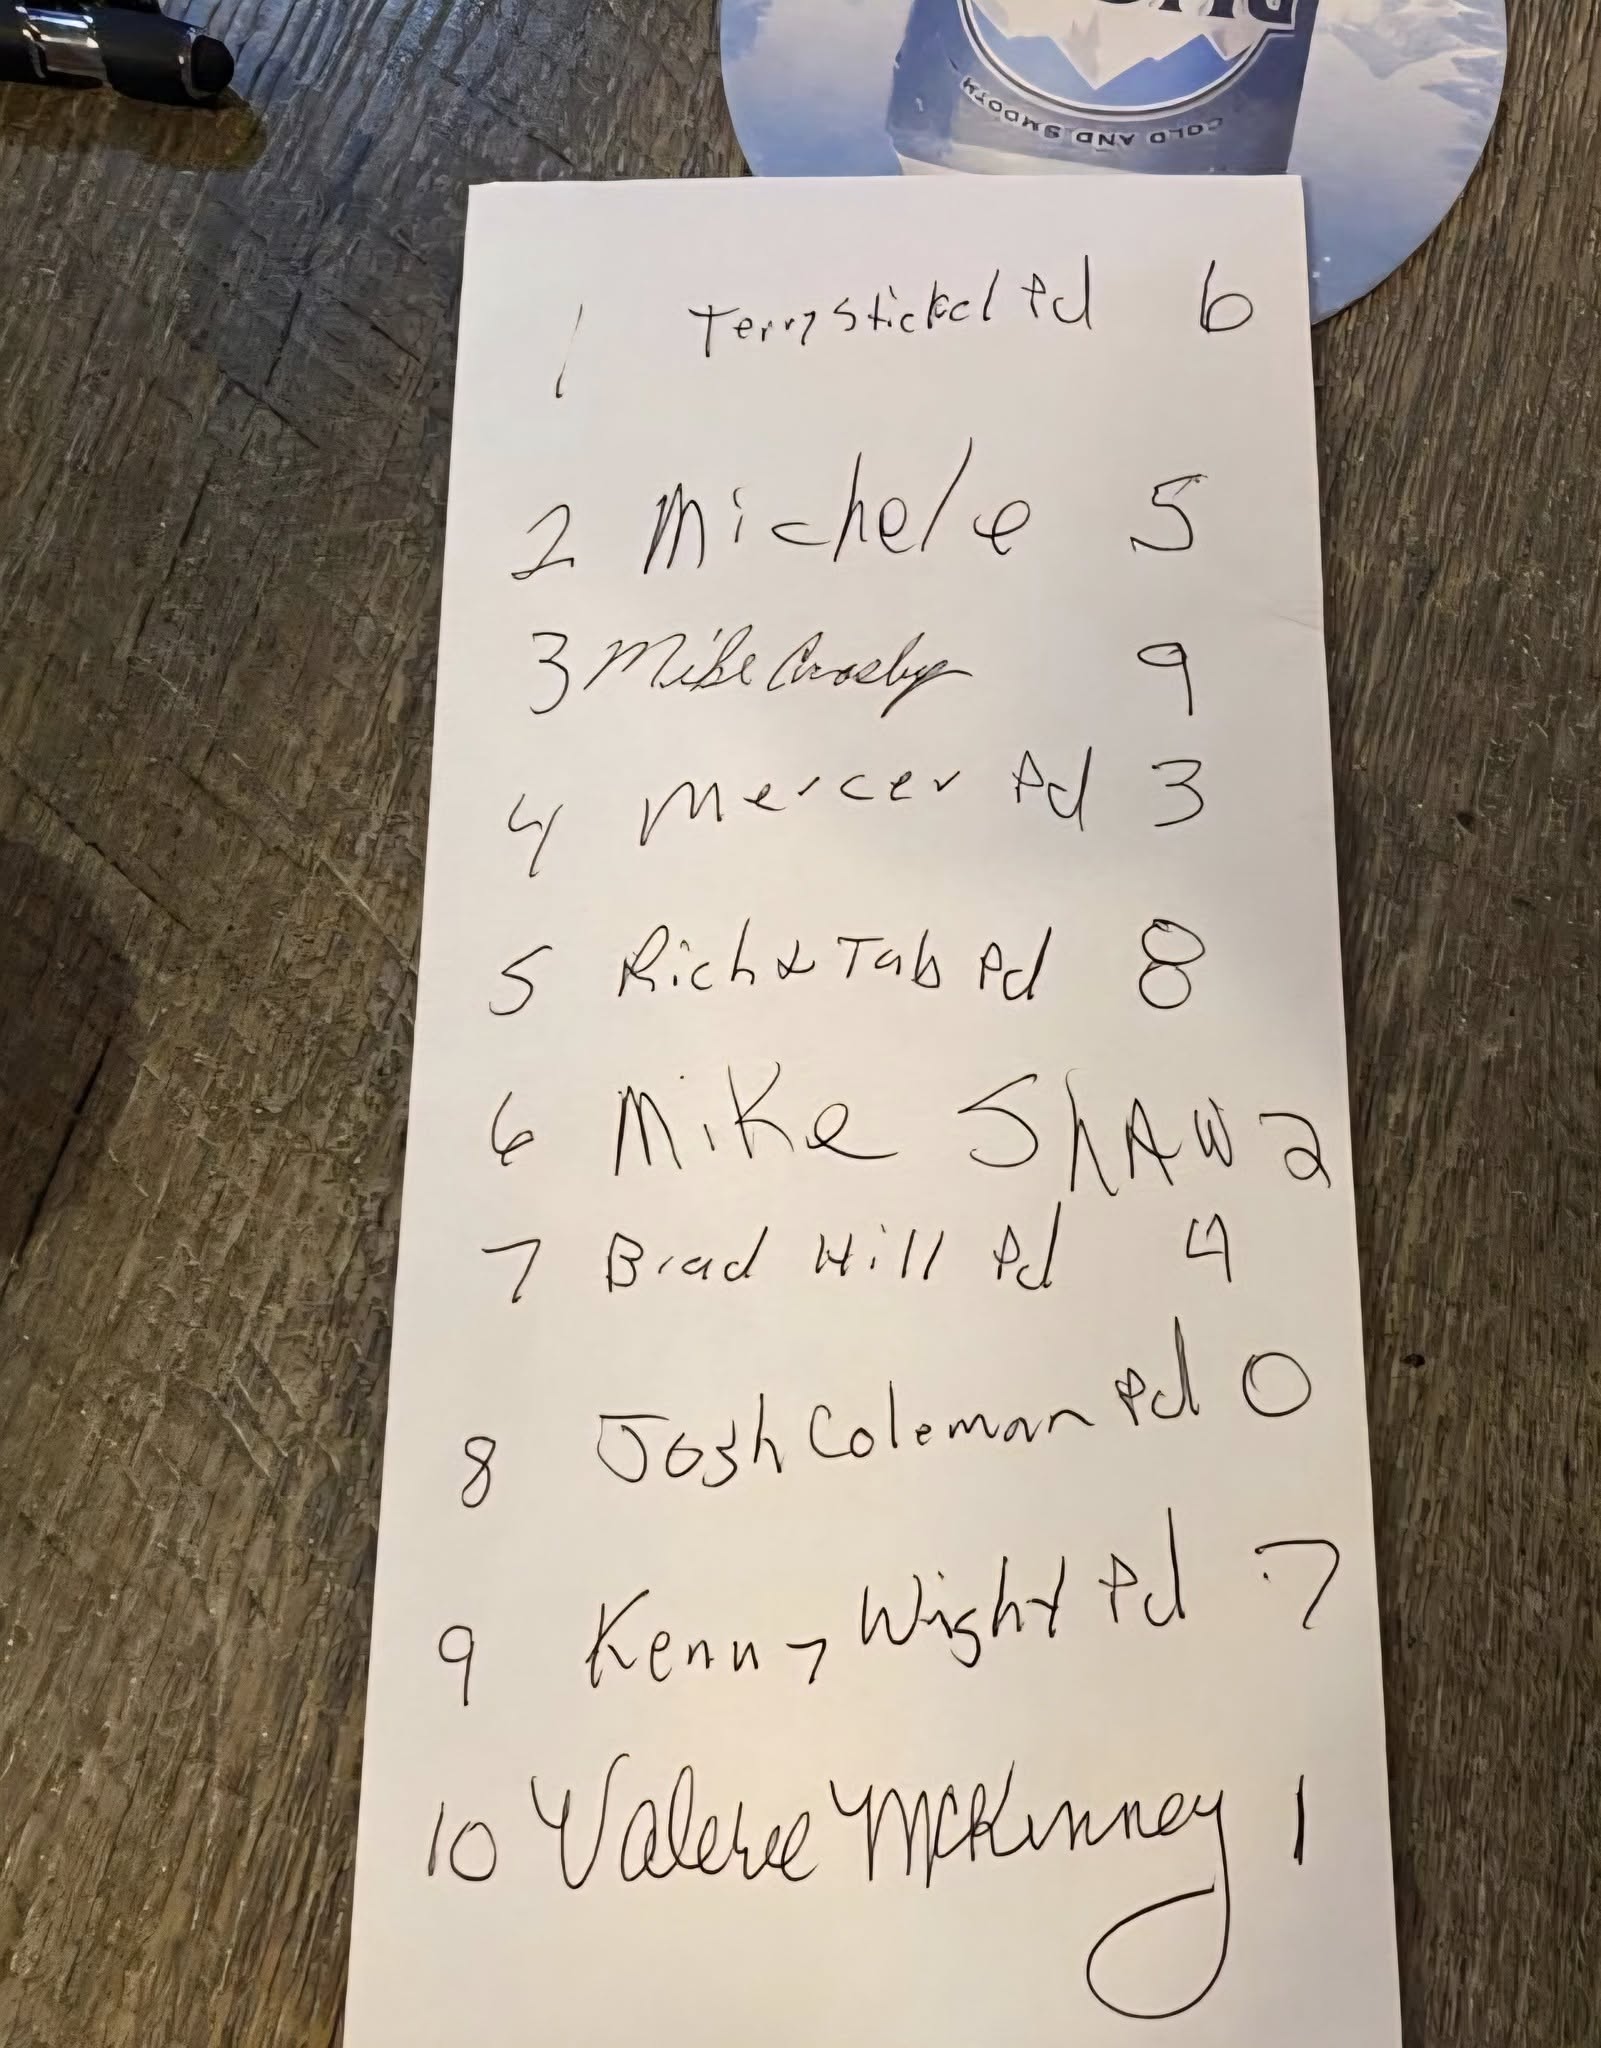 COLD AND SMOOTH
1 Terry Stickel Pd 6
2 Michele 5
3 Mike Crosby 9
4 Mercer Pd 3
5 Rich & Tab Pd 8
6 Mike ShAW 2
7 Brad Hill Pd 4
8 Josh Coleman Pd 0
9 Kenny Wight Pd 7
10 Valerie McKinney 1